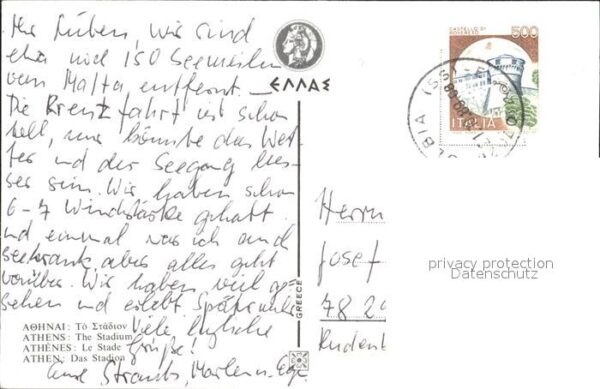 Ihr Lieben, wir sind
etwa noch 150 Seemeilen
von Malta entfernt. —
Die Kreuzfahrt ist schon
toll, nur könnte das Wet-
ter und der Seegang bes-
ser sein. Wir haben schon
6-7 Windstärke gehabt
und einmal war ich auch
seekrank aber alles geht
vorüber. Wir haben viel ge-
sehen und erlebt. Später mehr
Viele herzliche
Grüße!
ΕΛΛΑΣ
CASTELLO DI
ROVERETO
500
ITALIA
OLBIA (SS)
Herrn
Josef
78 29
privacy protection
Datenschutz
GREECE
ΑΘΗΝΑΙ: Τὸ Στάδιον
ATHENS: The Stadium
ATHÈNES: Le Stade
ATHEN: Das Stadion